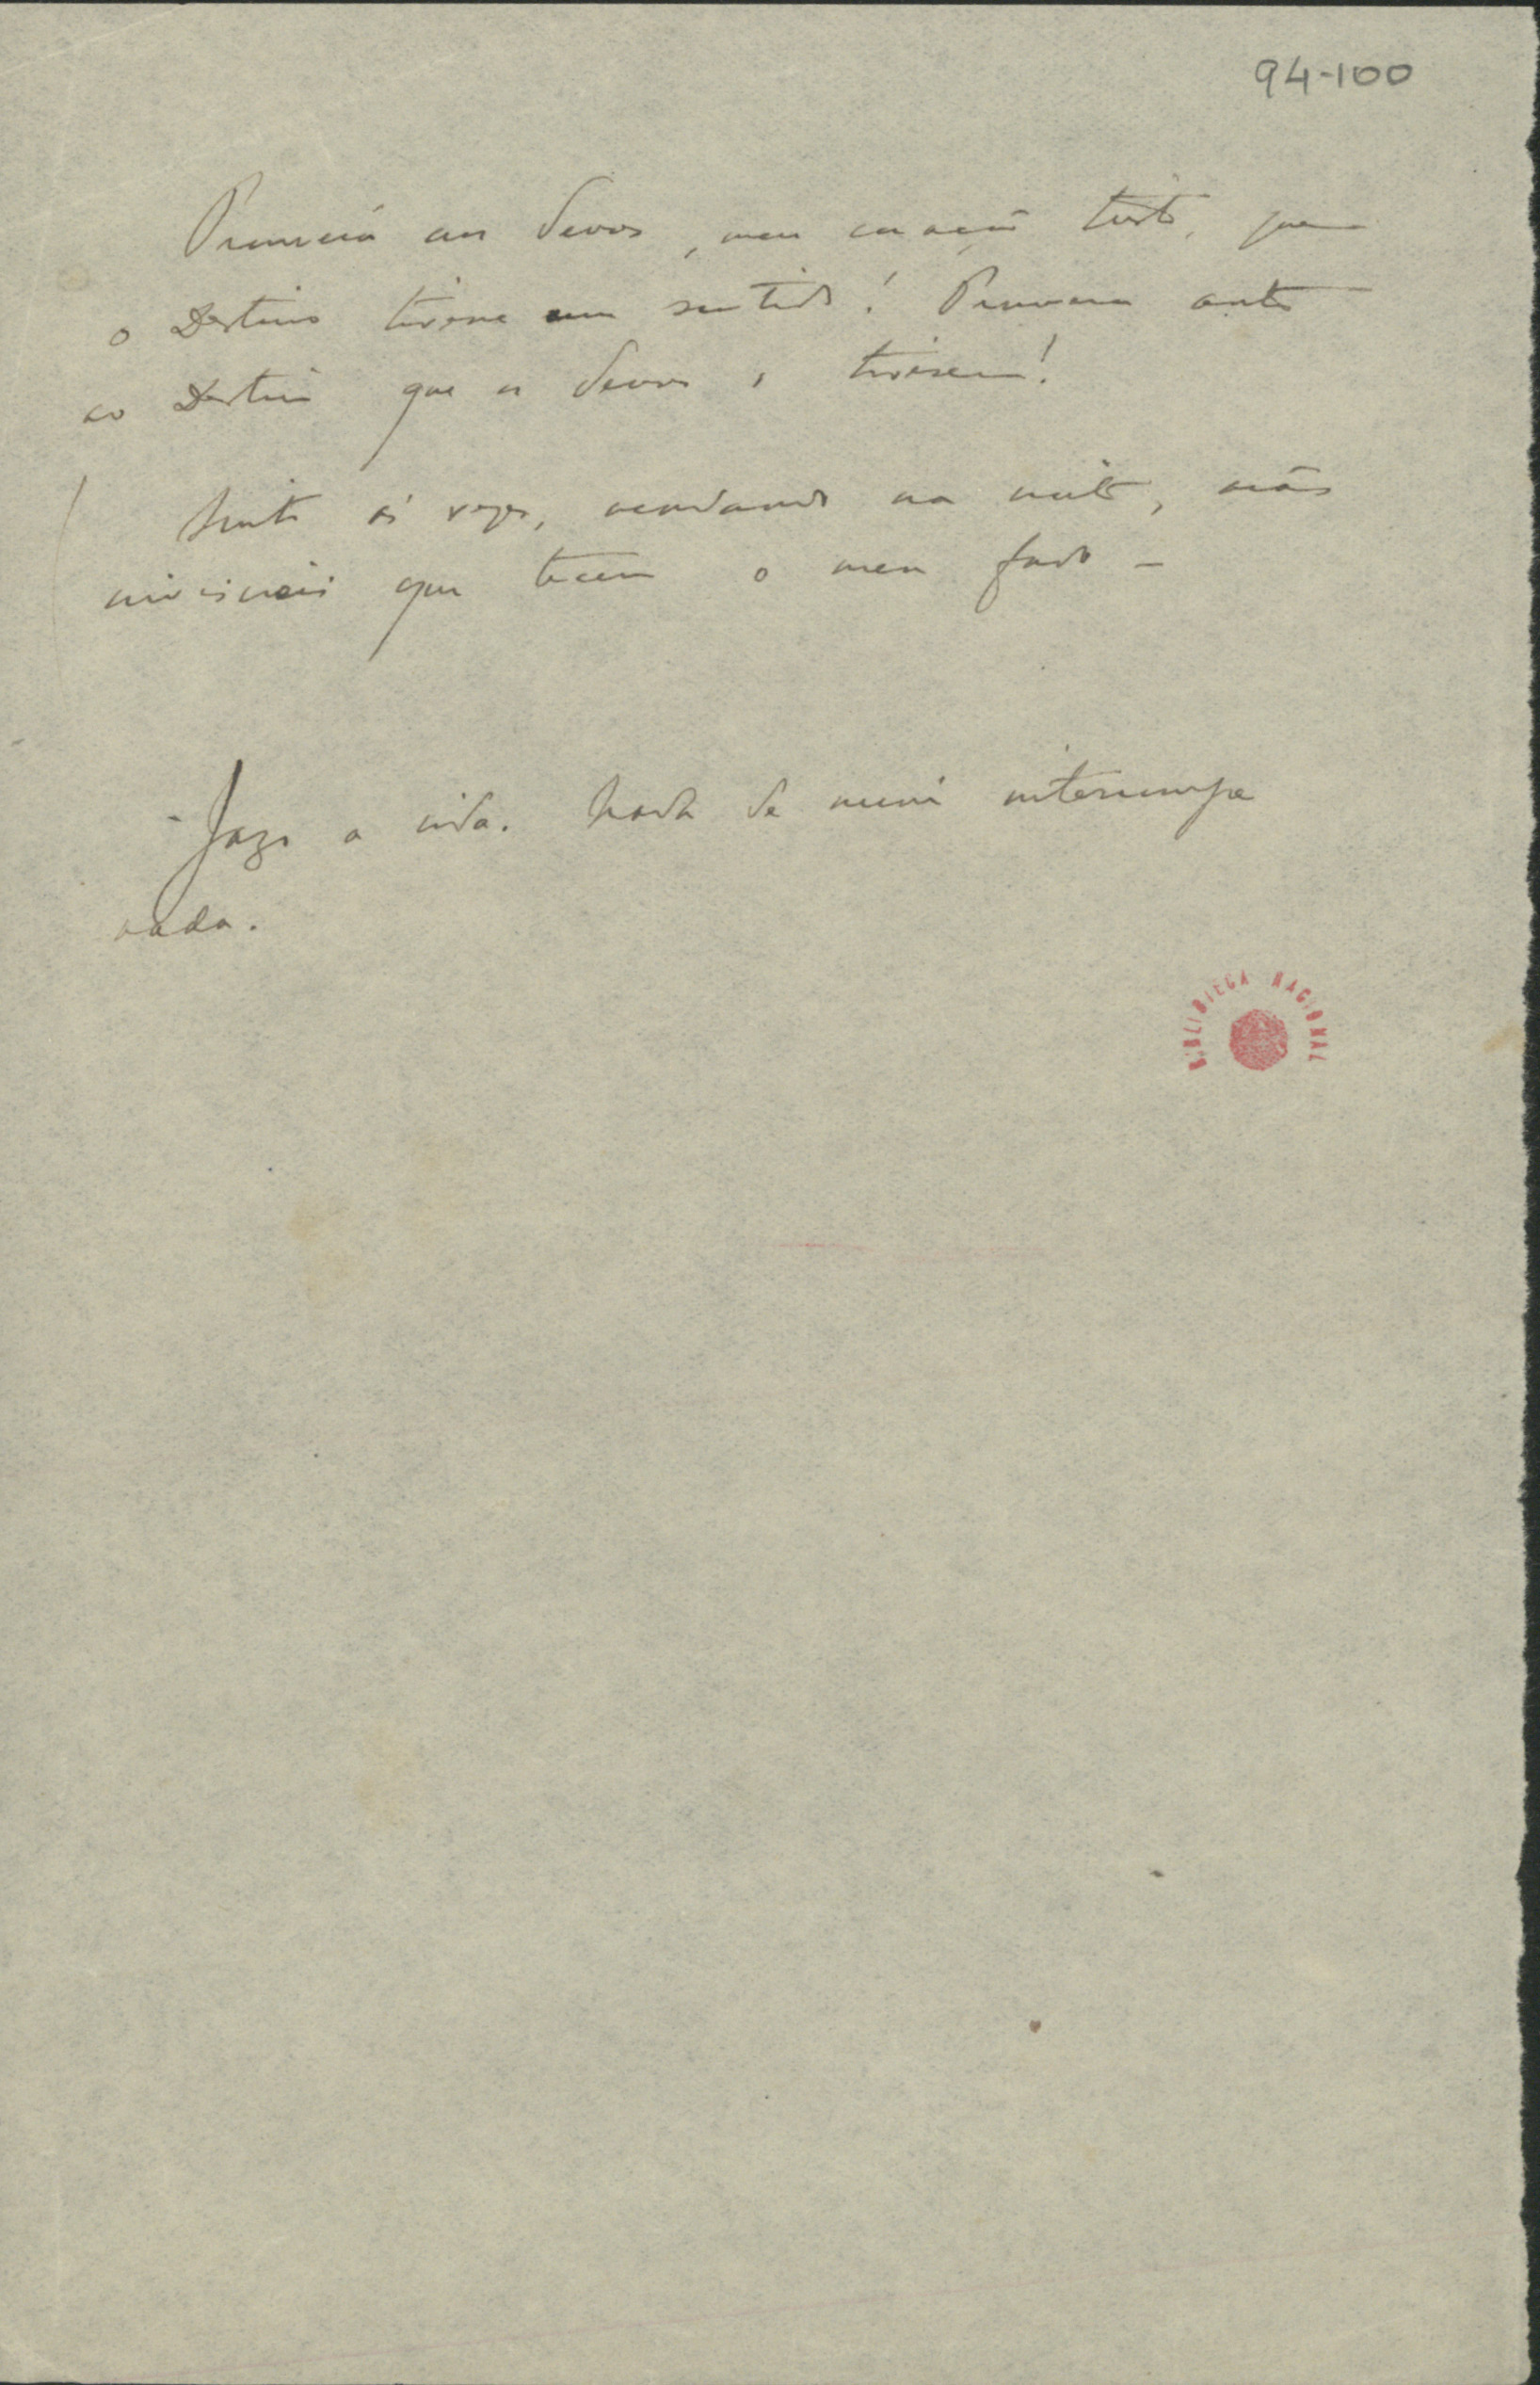 94-100
Prouvera aos deuses, meu coração triste, que
o Destino tivesse um sentido! Prouvera antes
ao Destino que os deuses o tivessem!
Sinto ás vezes, acordando na noite, mãos
invisiveis que tecem o meu fado —
Jazo a vida. Nada de mim interrompe
nada.
BIBLIOTECA NACIONAL